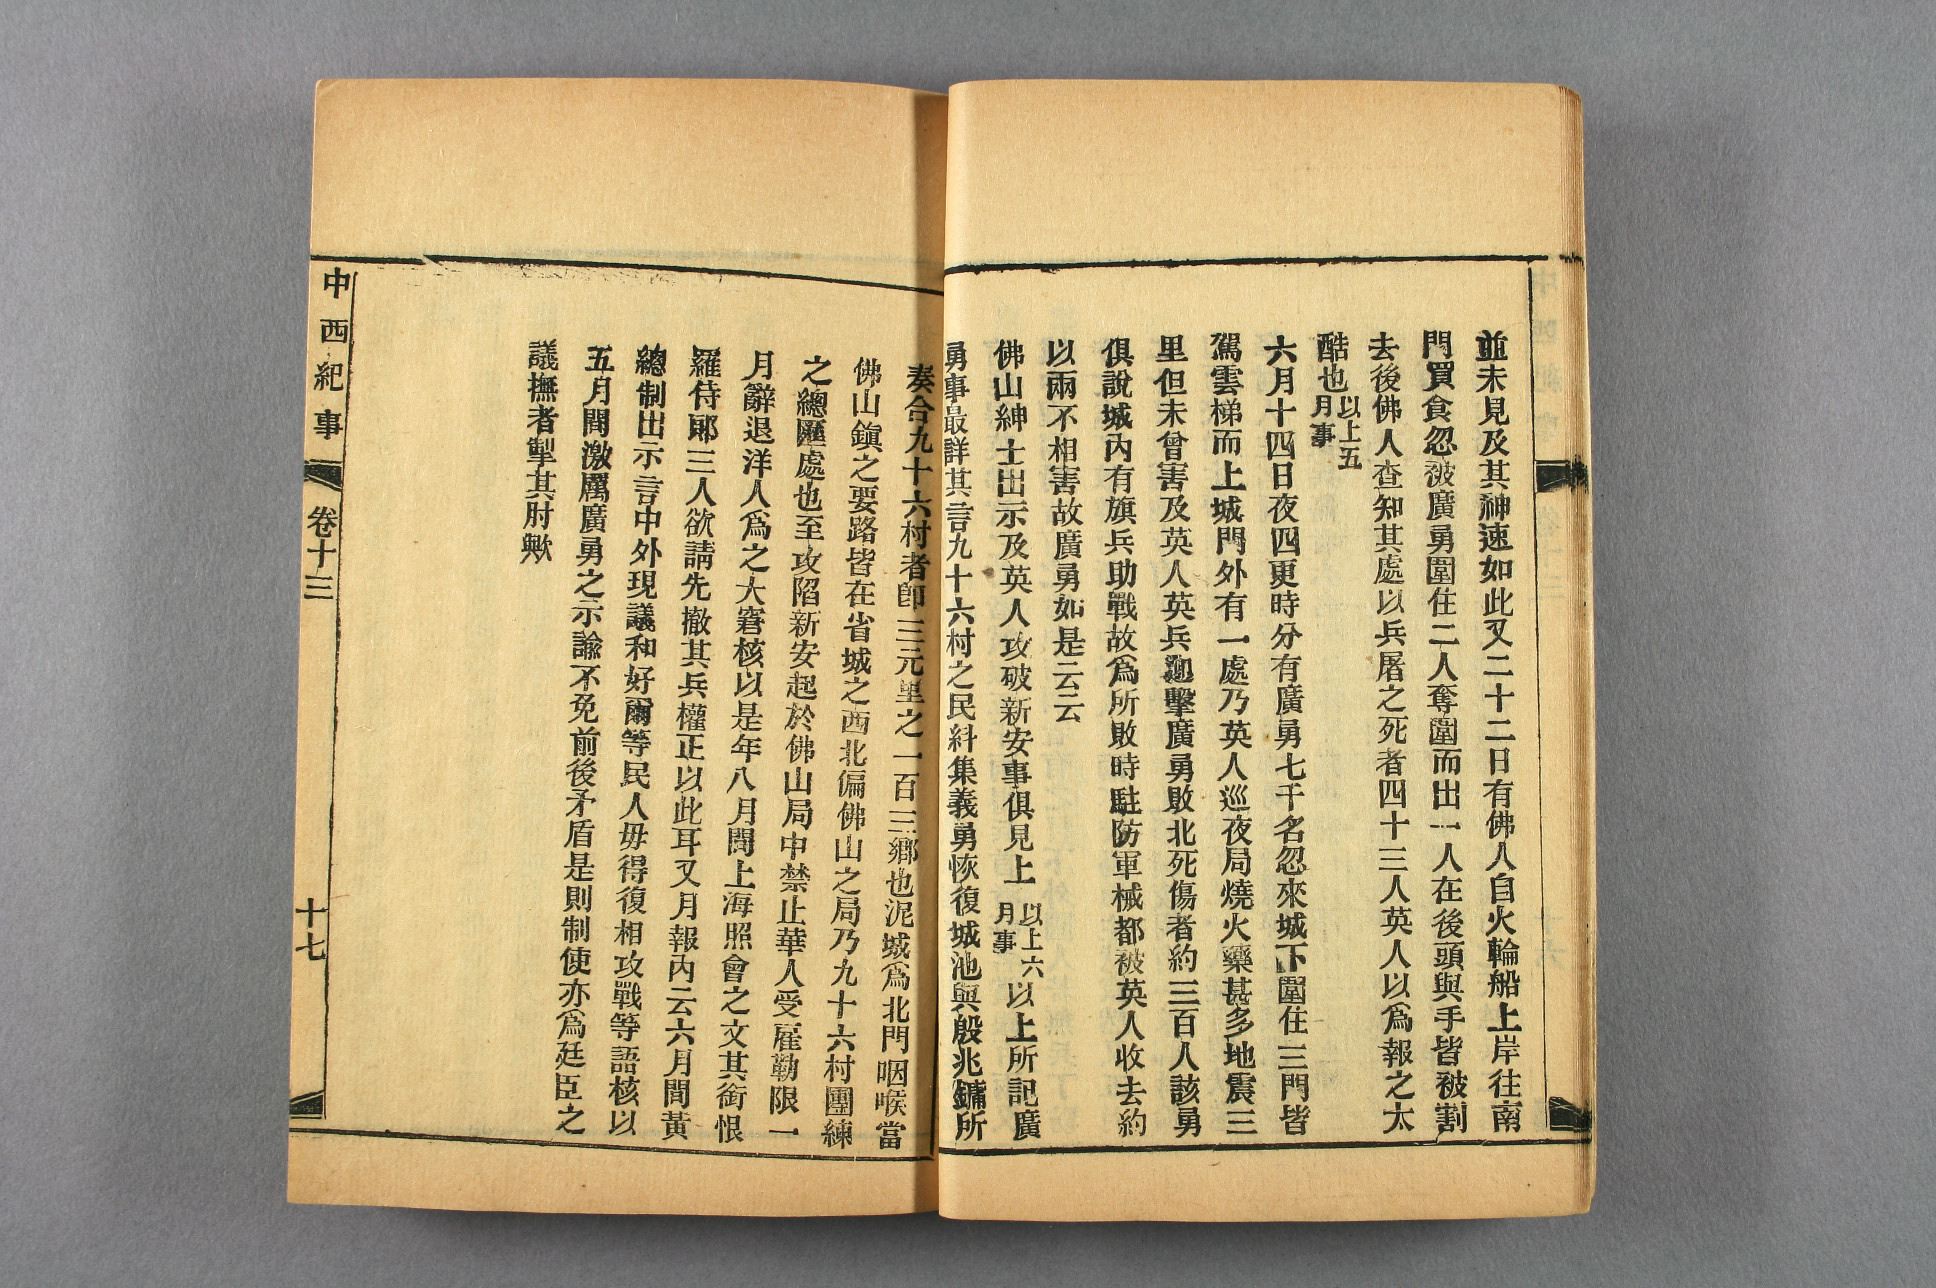 並未見及其神速如此又二十二日有佛人自火輪船上岸往南
門買食忽被廣勇圍住二人奪圍而出一人在後頭與手皆被割
去後佛人查知其處以兵屠之死者四十三人英人以爲報之太
酷也以上五月事
六月十四日夜四更時分有廣勇七千名忽來城下圍住三門皆
駕雲梯而上城門外有一處乃英人巡夜局燒火藥甚多地震三
里但未曾害及英人英兵廻擊廣勇敗北死傷者約三百人該勇
俱說城內有旗兵助戰故爲所敗時駐防軍械都被英人收去約
以兩不相害故廣勇如是云云
佛山紳士出示及英人攻破新安事俱見上以上六月事以上所記廣
勇事最詳其言九十六村之民糾集義勇恢復城池與殷兆鏞所
奏合九十六村者卽三元里之一百三鄉也泥城爲北門咽喉當
佛山鎭之要路皆在省城之西北偏佛山之局乃九十六村團練
之總匯處也至攻陷新安起於佛山局中禁止華人受雇勒限一
月辭退洋人爲之大窘核以是年八月間上海照會之文其銜恨
羅侍郞三人欲請先撤其兵權正以此耳又月報內云六月間黃
總制出示言中外現議和好爾等民人毋得復相攻戰等語核以
五月間激厲廣勇之示諭不免前後矛盾是則制使亦爲廷臣之
議撫者掣其肘歟
中西紀事 卷十三 十七